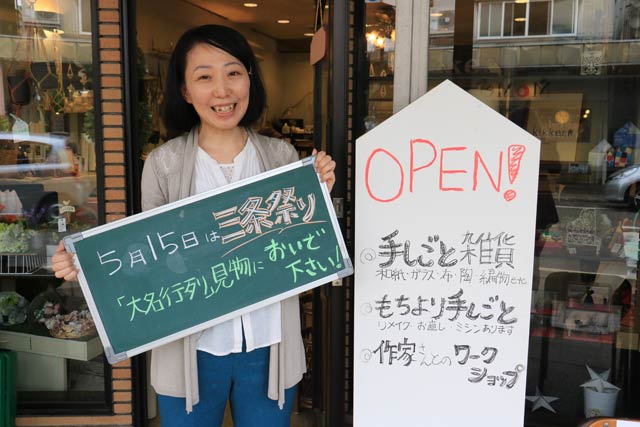 5月15日は三条祭り
「大名行列」見物においで
下さい!
OPEN!
手しごと雑貨
和紙・ガラス・布・陶・編物etc
もちより手しごと
リメイク・お直し・ミシンあります
作家さんとのワーク
ショップ